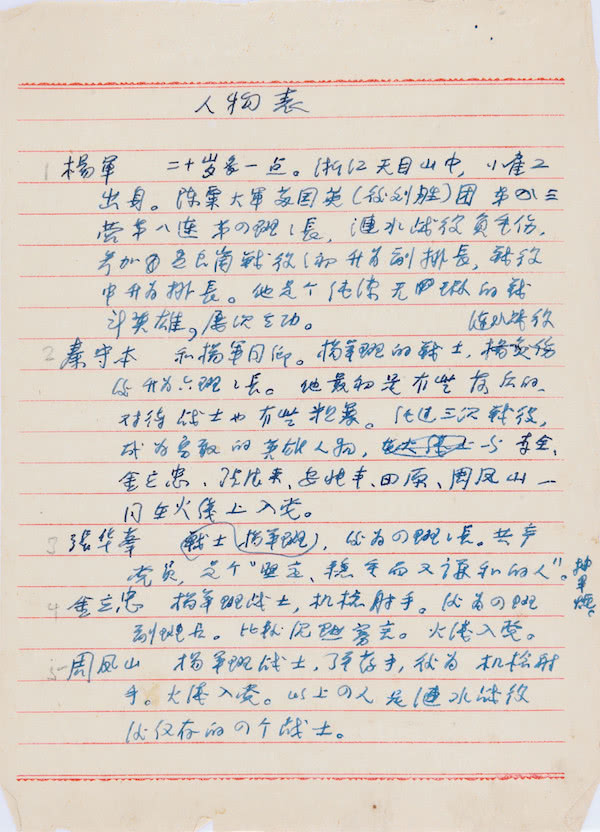 人物表
1 楊軍 二十岁多一点。浙江天目山中,小雇工
出身。陈粟大軍苏国英(後刘胜)团第三
营第八连第四班班長,漣水战役負重伤,
参加吐絲口战役(初升为副排長,战役
中升为排長。他是个纯潔无瑕的战
斗英雄,屡次立功。 涟水战役
2 秦守本 和楊軍同鄉。楊軍班的战士,楊負伤
后升为六班班長。他最初是有些落后的,
对待战士也有些粗暴。经过三次战役,
成为勇敢的英雄人物,与李全、
金立忠、张华峯、安兆丰、田原、周凤山一
同在火线上入党。
3 張华峯 战士(楊軍班),后为四班班長。共产
党员,是个"坚定、稳重而又謙和的人"。
4 金立忠 楊軍班战士,机枪射手。后为四班
副班长。比較沉默寡言。火线入党。
5 周凤山 楊軍班战士,弹药手,後为机枪射
手。火线入党。以上四人是漣水战役
后仅存的四个战士。